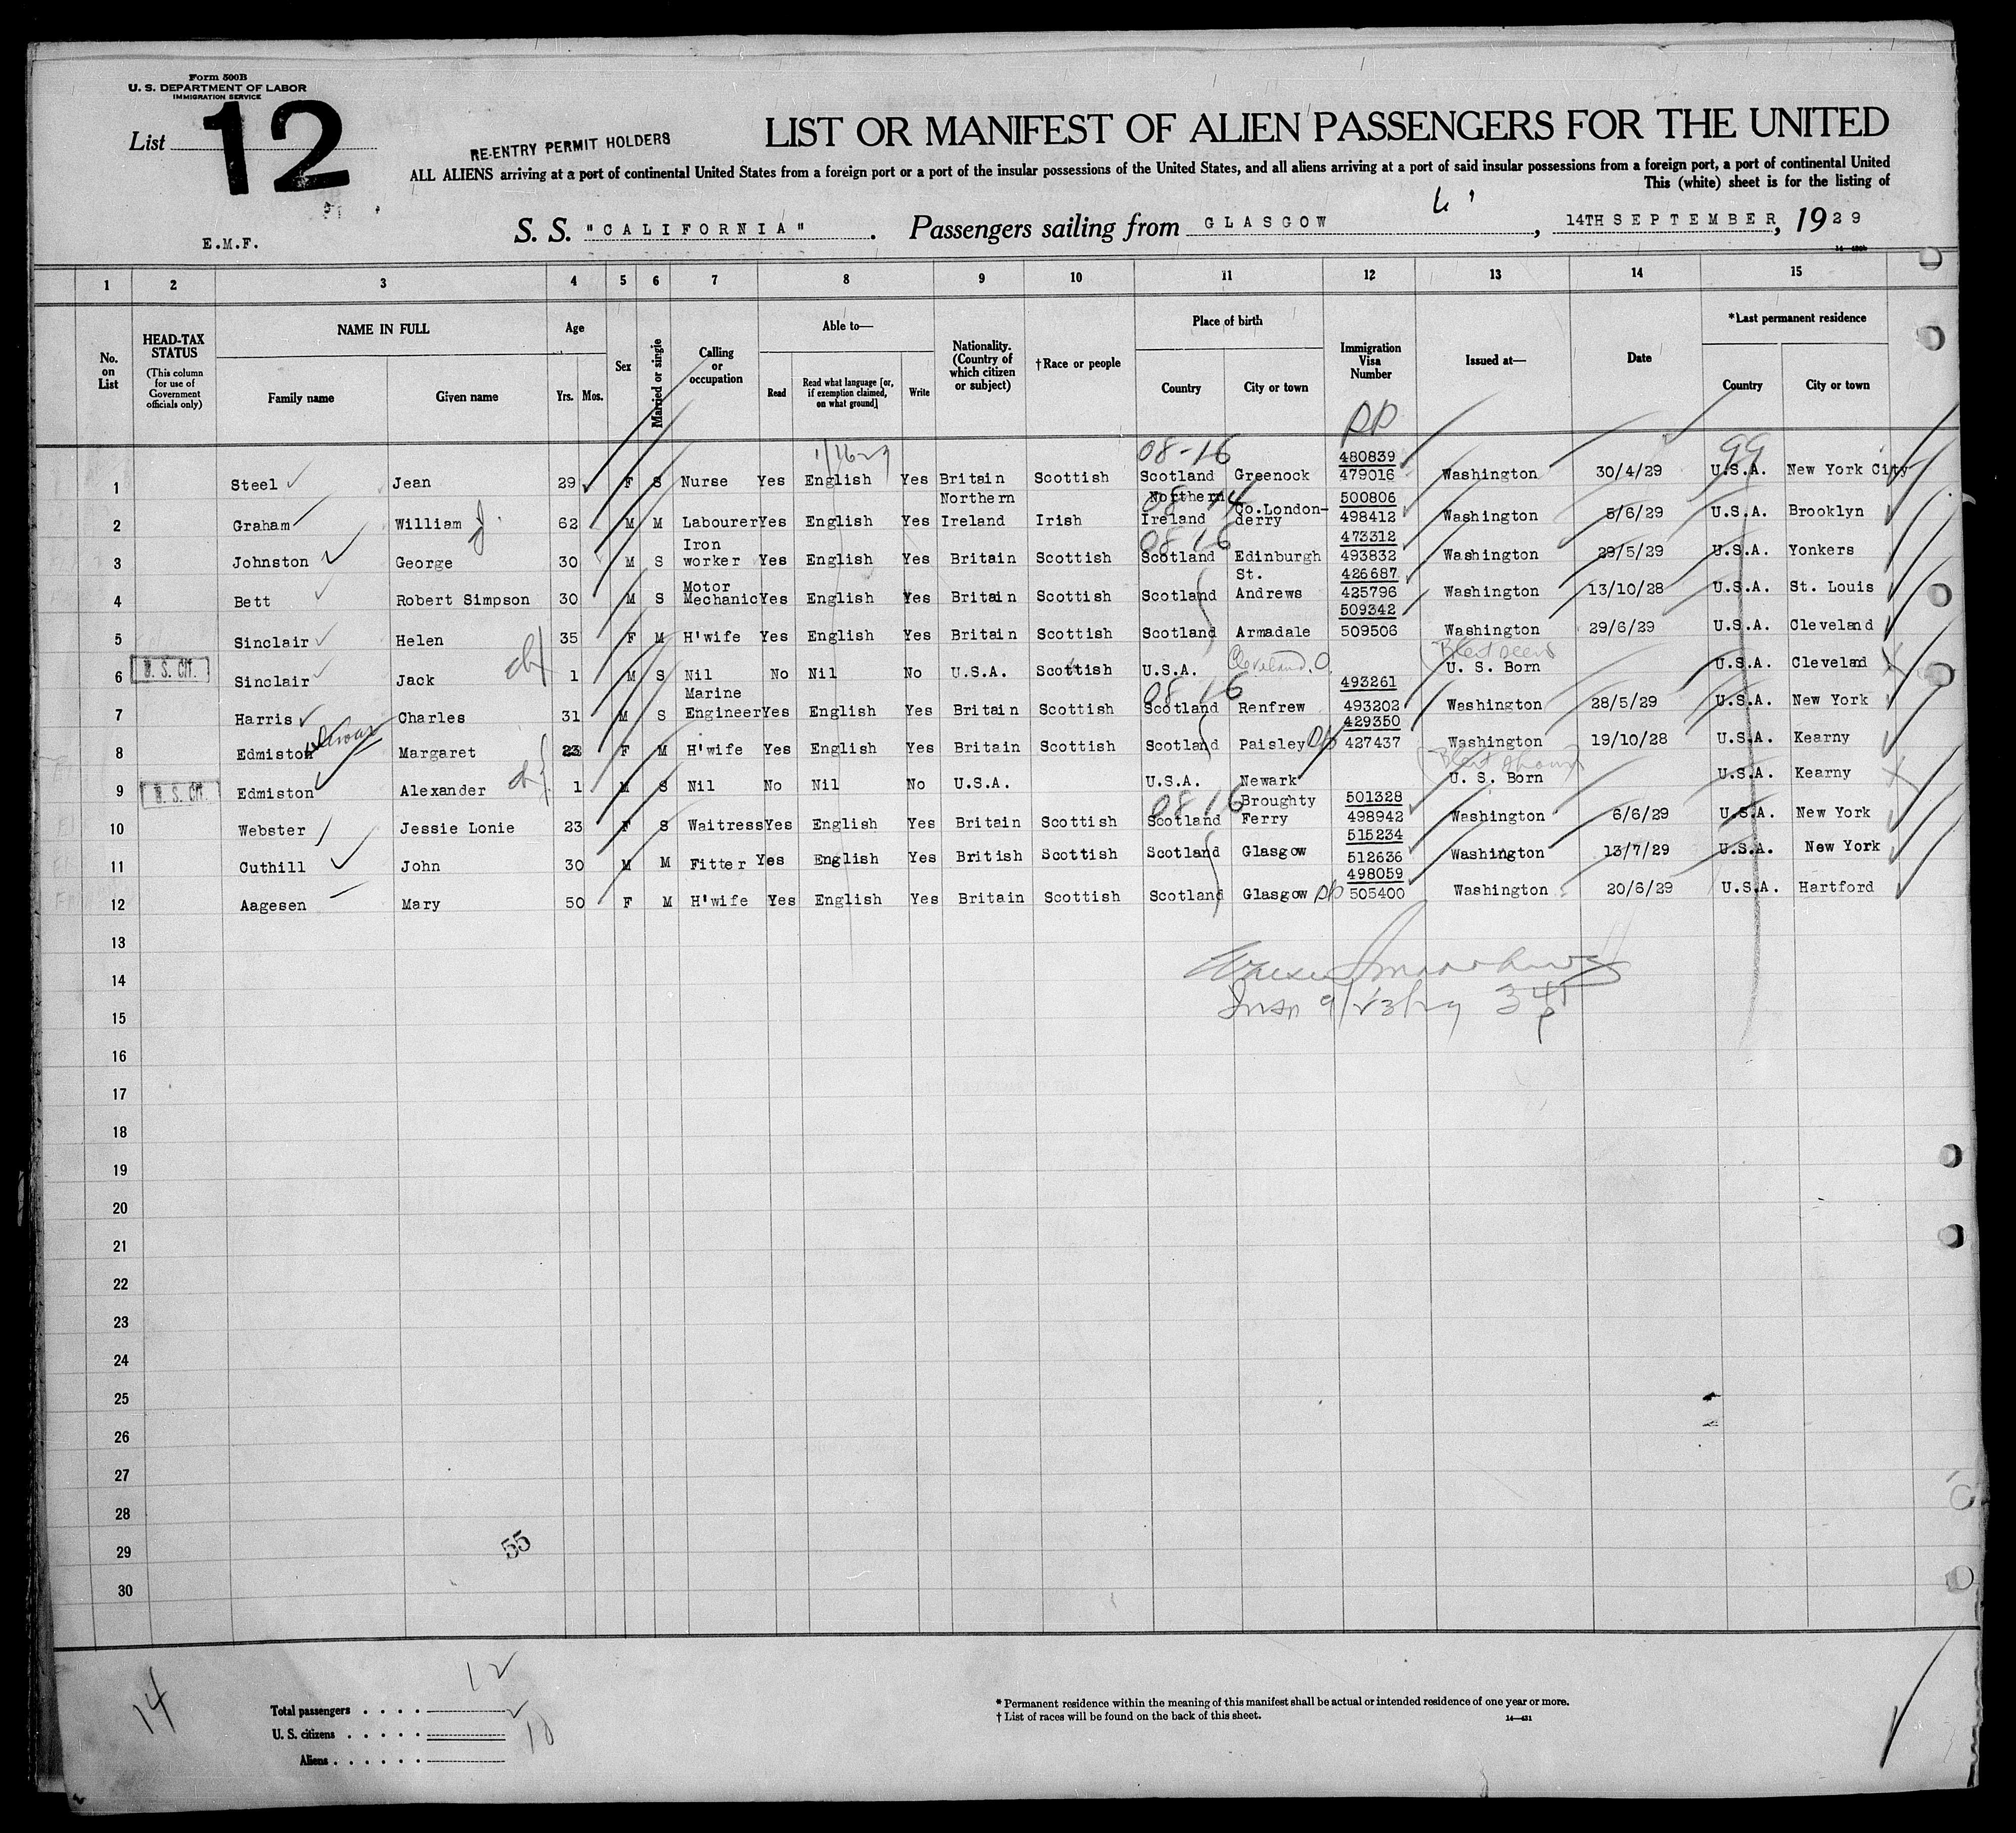 Form 500B
U. S. DEPARTMENT OF LABOR
IMMIGRATION SERVICE
List 12
RE-ENTRY PERMIT HOLDERS
LIST OR MANIFEST OF ALIEN PASSENGERS FOR THE UNITED
ALL ALIENS arriving at a port of continental United States from a foreign port or a port of the insular possessions of the United States, and all aliens arriving at a port of said insular possessions from a foreign port, a port of continental United
This (white) sheet is for the listing of
E.M.F.
S. S. "CALIFORNIA" . Passengers sailing from GLASGOW , 14TH SEPTEMBER, 1929
1 2 3 4 5 6 7 8 9 10 11 12 13 14 15
No. on List
HEAD-TAX STATUS
(This column for use of Government officials only)
NAME IN FULL
Family name Given name
Age
Yrs. Mos.
Sex
Married or single
Calling or occupation
Able to—
Read Read what language [or, if exemption claimed, on what ground] Write
Nationality. (Country of which citizen or subject)
†Race or people
Place of birth
Country City or town
Immigration Visa Number
Issued at—
Date
*Last permanent residence
Country City or town
08-16 480839 99
1 Steel Jean 29 F S Nurse Yes English Yes Britain Scottish Scotland Greenock 479016 Washington 30/4/29 U.S.A. New York City
Northern Northern Co.London- 500806
2 Graham William J 62 M M Labourer Yes English Yes Ireland Irish Ireland derry 498412 Washington 5/6/29 U.S.A. Brooklyn
Iron 08 16 473312
3 Johnston George 30 M S worker Yes English Yes Britain Scottish Scotland Edinburgh 493832 Washington 29/5/29 U.S.A. Yonkers
Motor St. 426687
4 Bett Robert Simpson 30 M S Mechanic Yes English Yes Britain Scottish Scotland Andrews 425796 Washington 13/10/28 U.S.A. St. Louis
509342
5 Sinclair Helen 35 F M H'wife Yes English Yes Britain Scottish Scotland Armadale 509506 Washington 29/6/29 U.S.A. Cleveland
U. S. CIT.
6 Sinclair Jack 1 M S Nil No Nil No U.S.A. Scottish U.S.A. Cleveland, O. U. S. Born U.S.A. Cleveland
Marine 08 16 493261
7 Harris Charles 31 M S Engineer Yes English Yes Britain Scottish Scotland Renfrew 493202 Washington 28/5/29 U.S.A. New York
429350
8 Edmiston Margaret 23 F M H'wife Yes English Yes Britain Scottish Scotland Paisley 427437 Washington 19/10/28 U.S.A. Kearny
U. S. CIT.
9 Edmiston Alexander 1 M S Nil No Nil No U.S.A. U.S.A. Newark U. S. Born U.S.A. Kearny
08 16 Broughty 501328
10 Webster Jessie Lonie 23 F S Waitress Yes English Yes Britain Scottish Scotland Ferry 498942 Washington 6/6/29 U.S.A. New York
515234
11 Cuthill John 30 M M Fitter Yes English Yes British Scottish Scotland Glasgow 512636 Washington 13/7/29 U.S.A. New York
498059
12 Aagesen Mary 50 F M H'wife Yes English Yes Britain Scottish Scotland Glasgow 505400 Washington 20/6/29 U.S.A. Hartford
13
14
15
16
17
18
19
20
21
22
23
24
25
26
27
28
29
30
55
14
12
Total passengers
U. S. citizens
10
Aliens
* Permanent residence within the meaning of this manifest shall be actual or intended residence of one year or more.
† List of races will be found on the back of this sheet.
14—431